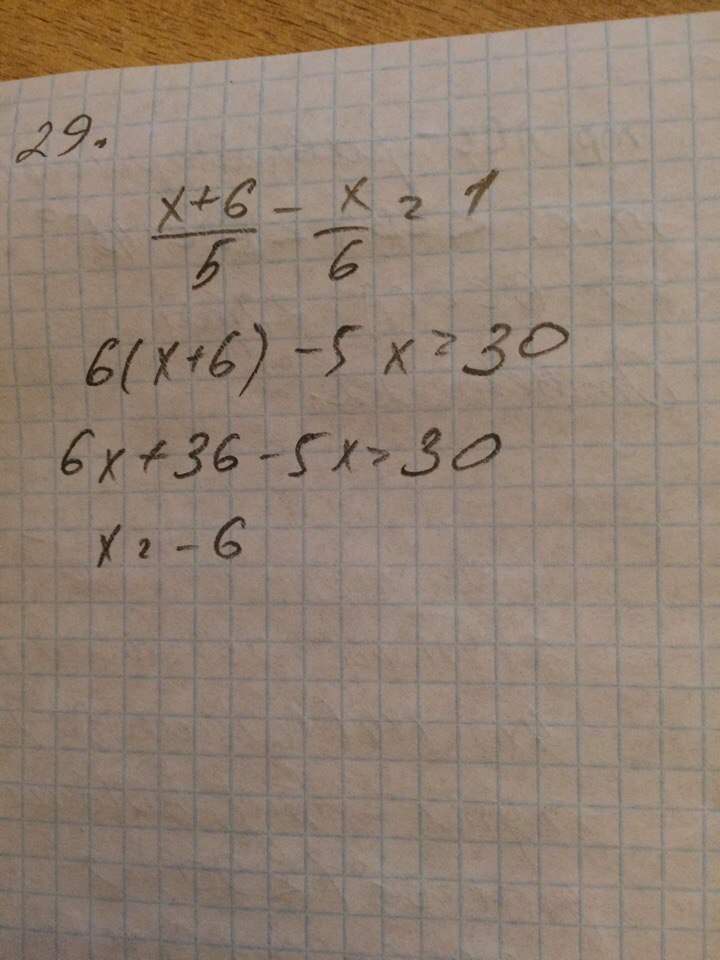 29.
x+6/5 - x/6 = 1
6(x+6) -5x = 30
6x+36-5x=30
x = -6